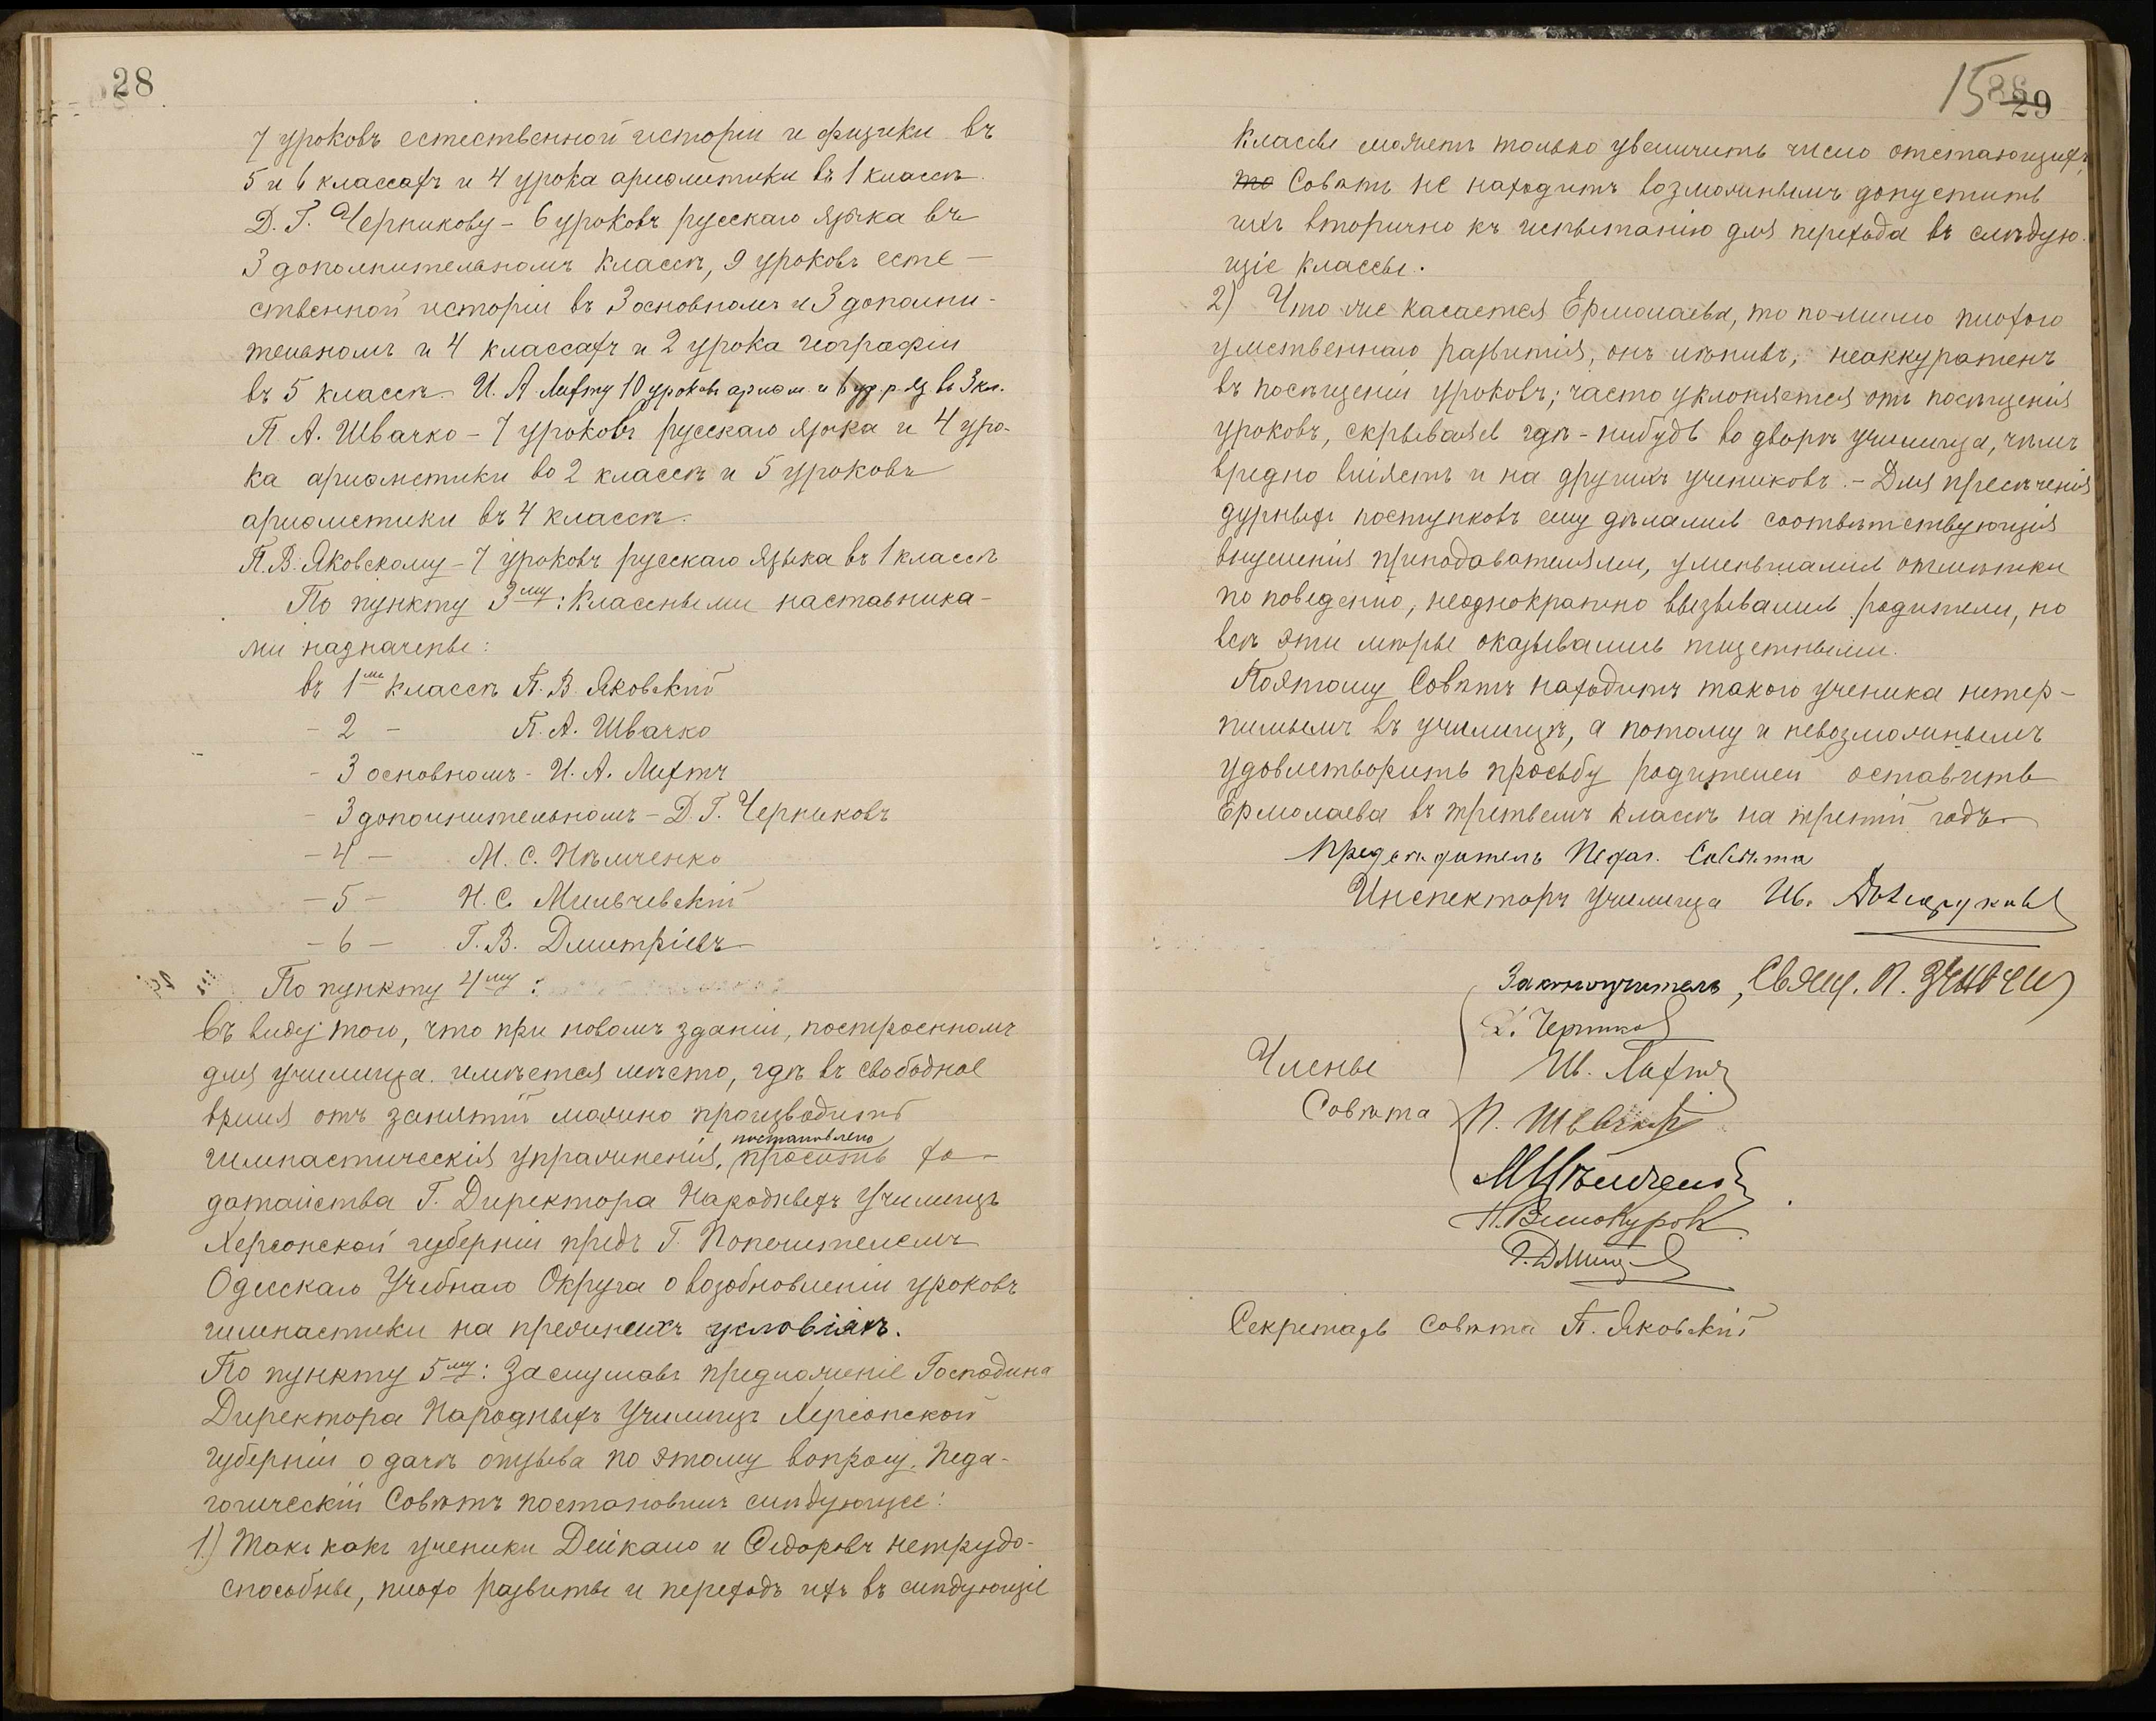 28
7 уроковъ естественной исторіи и физики въ
5 и 6 классахъ и 4 урока ариѳметики въ 1 классѣ.
Д. Г. Черникову – 6 уроковъ русскаго языка въ
3 дополнительномъ классѣ, 9 уроковъ есте-
ственной исторіи въ 3 основномъ и 3 дополни-
тельномъ и 4 классахъ и 2 урока географіи
въ 5 классѣ. И. А. Лифту 10 уроковъ ариѳм. и 6 ур. р. яз. въ 3 кл.
П. А. Швачко – 7 уроковъ русскаго языка и 4 уро-
ка ариѳметики во 2 классѣ и 5 уроковъ
ариѳметики въ 4 классѣ.
П. В. Яковскому – 7 уроковъ русскаго языка въ 1 классѣ
По пункту 3му: Классными наставника-
ми назначены:
въ 1мъ классѣ П. В. Яковскій
– 2 – П. А. Швачко
– 3 основномъ – И. А. Лифтъ
– 3 дополнительномъ – Д. Г. Черниковъ
– 4 – М. С. Нѣмченко
– 5 – Н. С. Мильчевскій
– 6 – Г. В. Дмитріевъ
По пункту 4му:
Въ виду того, что при новомъ зданіи, построенномъ
для училища имѣется мѣсто, гдѣ въ свободное
время отъ занятій можно производить
постановлено
гимнастическія упражненія, просить хо-
датайства Г. Директора Народныхъ Училищъ
Херсонской губерніи предъ Г. Попечителемъ
Одесскаго Учебнаго Округа о возобновленіи уроковъ
гимнастики на прежнихъ условіяхъ.
По пункту 5му: Заслушавъ предложеніе Господина
Директора Народныхъ Училищъ Херсонской
губерніи о дачѣ отзыва по этому вопросу, Педа-
гогическій Совѣтъ постановилъ слѣдующее:
1.) Такъ какъ ученики Дейкало и Ѳедоровъ нетрудо-
способны, плохо развиты и переходъ ихъ въ слѣдующіе
15 29
классы можетъ только увеличить число отстающихъ,
то Совѣтъ не находитъ возможнымъ допустить
ихъ вторично къ испытанію для перехода въ слѣдую-
щіе классы.
2) Что же касается Ермолаева, то по-мимо плохого
умственнаго развитія, онъ лѣнивъ, неаккуратенъ
въ посѣщеніи уроковъ; часто уклоняется отъ посѣщенія
уроковъ, скрываясь гдѣ-нибудь во дворѣ училища, чѣмъ
вредно вліяетъ и на другихъ учениковъ. – Для пресѣченія
дурныхъ поступковъ ему дѣлались соотвѣтствующія
внушенія преподавателями, уменьшались отмѣтки
по поведенію, неоднократно вызывались родители, но
всѣ эти мѣры оказывались тщетными.
Поэтому Совѣтъ находитъ такого ученика нетер-
пимымъ въ училищѣ, а потому и невозможнымъ
удовлетворить просьбу родителей оставить
Ермолаева въ третьемъ классѣ на третій годъ.
Предсѣдатель Педаг. Совѣта
Инспекторъ училища Ив.
Законоучитель, Свящ. П.
Д. Черников
Члены Ив. Лифтъ
Совѣта П. Швачко
М Нѣмченко
Н. Винокуров
Г. Дми
Секретарь совѣта П. Яковскій